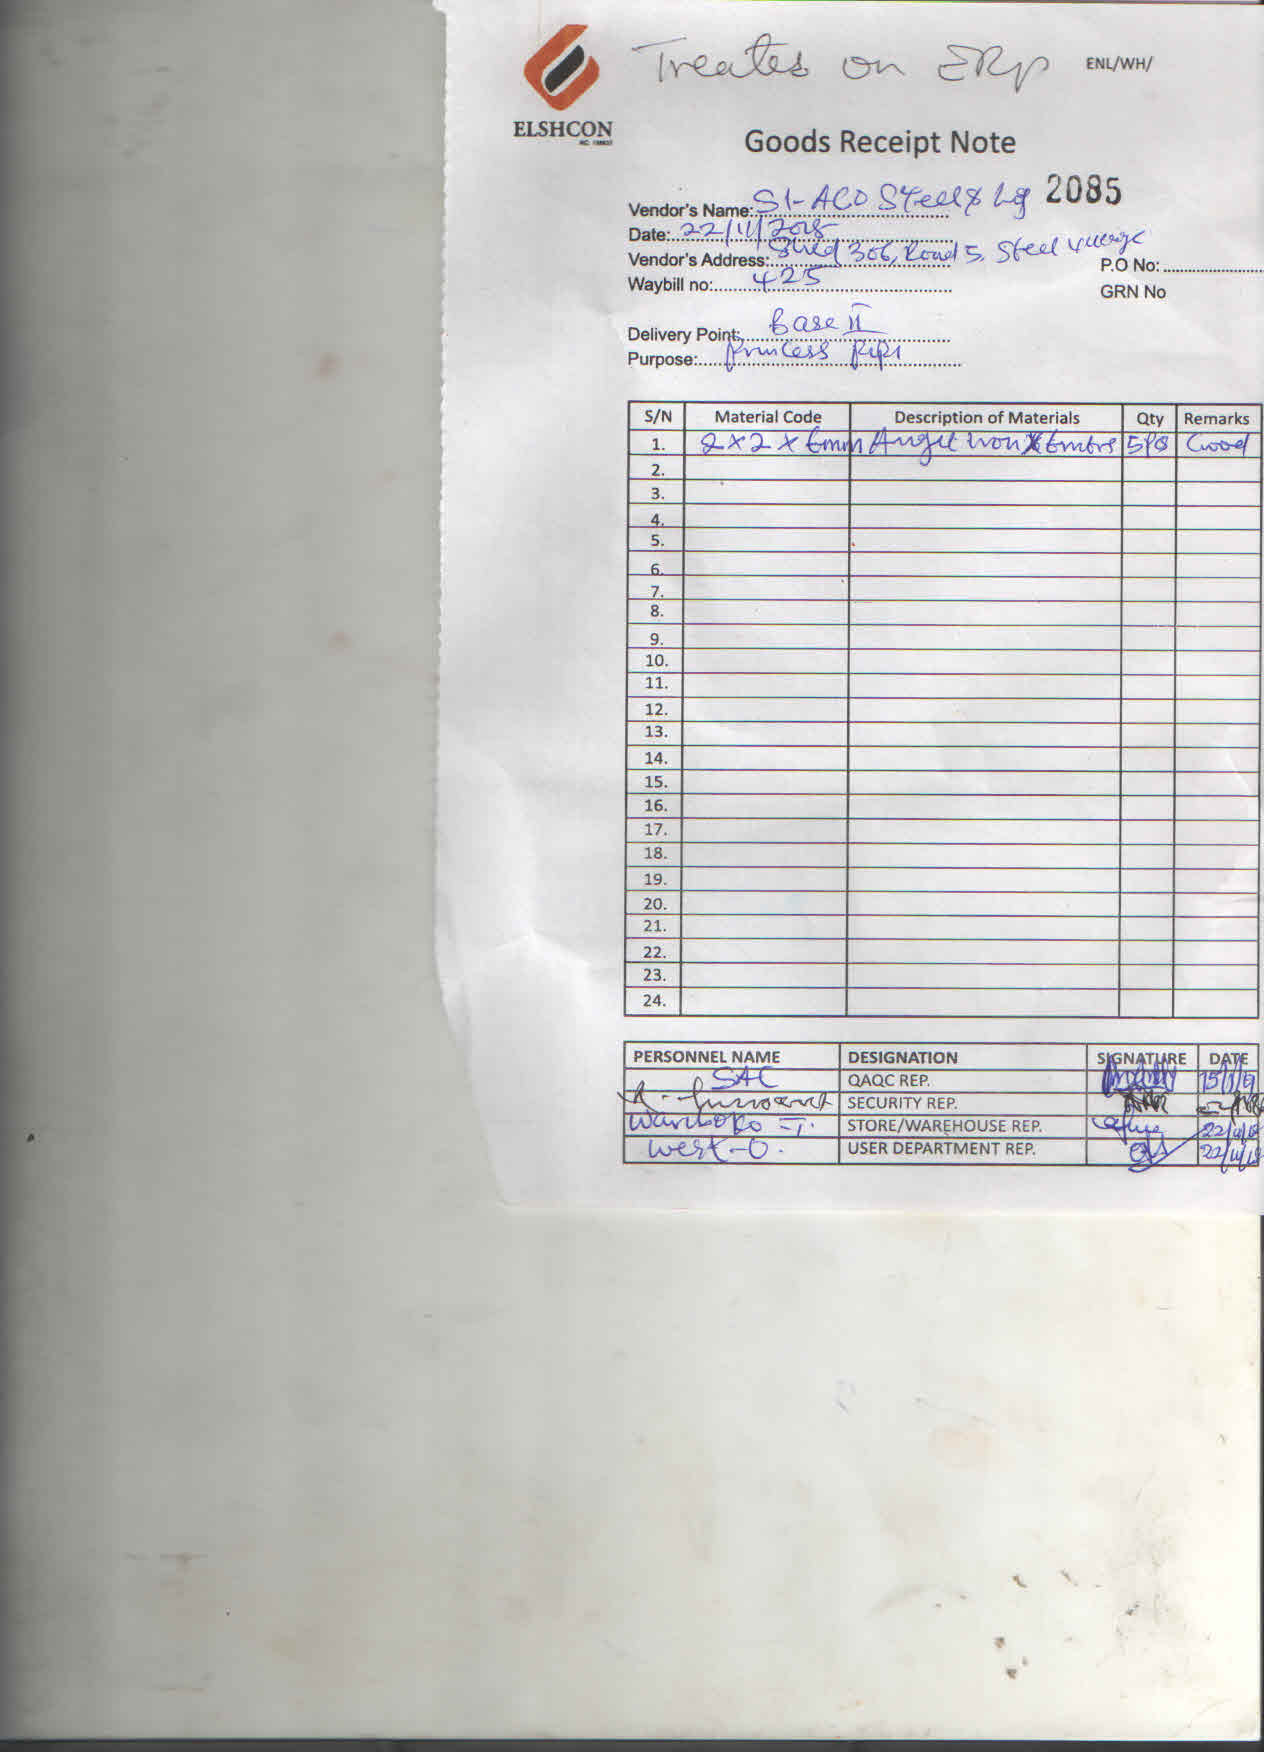 Treates on ERP
ENL/WH/
ELSHCON
Goods Receipt Note
2085
Vendor's Name: SI-ACO Steel & 
Date: 22/11/2018
Vendor's Address: Shed 306, Road 5, Steel Village
P.O No:
Waybill no: 425
GRN No
Delivery Point: Base II
Purpose: Princess
S/N Material Code Description of Materials Qty Remarks
1. 2x2x6mm Angle Iron x 6mtrs 5pcs Good
2.
3.
4.
5.
6.
7.
8.
9.
10.
11.
12.
13.
14.
15.
16.
17.
18.
19.
20.
21.
22.
23.
24.
PERSONNEL NAME DESIGNATION SIGNATURE DATE
SAC QAQC REP. 15/1/19
SECURITY REP.
Wariboko - T. STORE/WAREHOUSE REP. 22/11/18
West - O. USER DEPARTMENT REP. 22/11/18